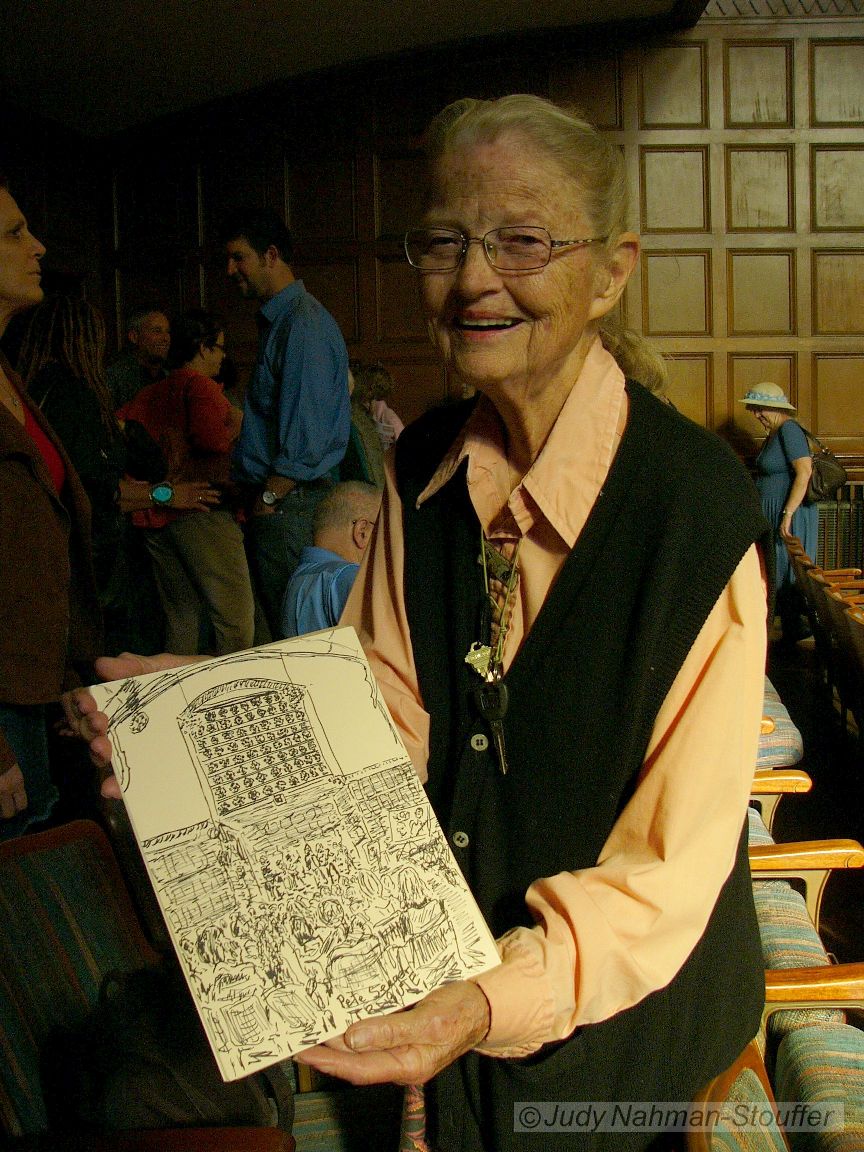 Pete Seeger
TRIBUTE
©Judy Nahman-Stouffer